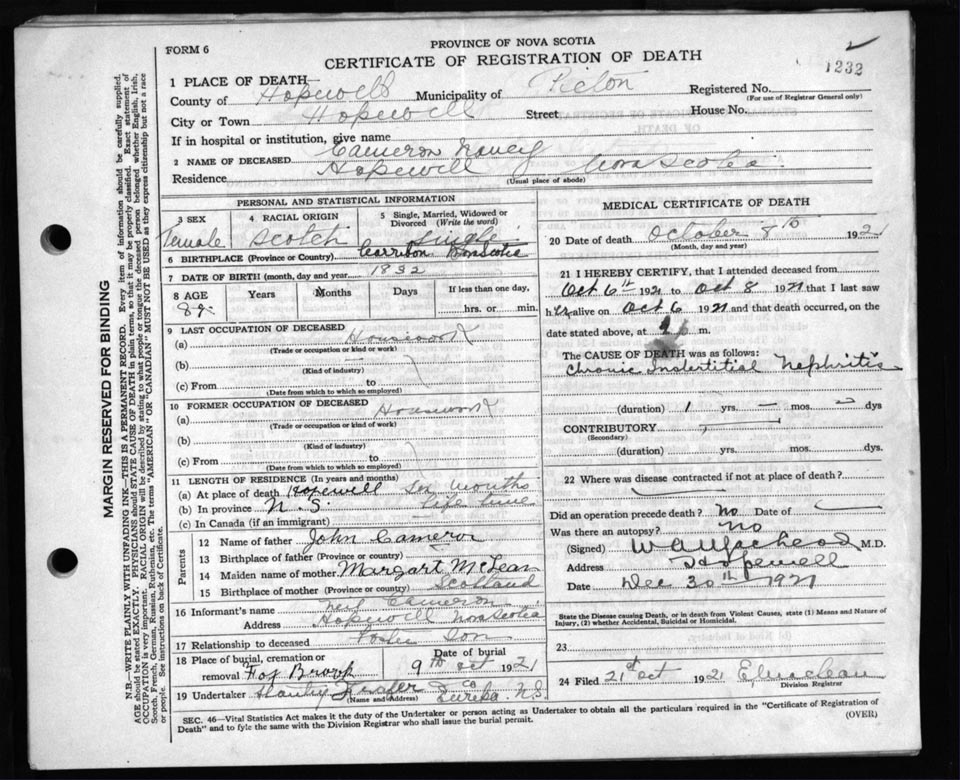 FORM 6
PROVINCE OF NOVA SCOTIA
CERTIFICATE OF REGISTRATION OF DEATH
1232
1 PLACE OF DEATH—
County of Hopewell Municipality of Pictou Registered No.
(For use of Registrar General only)
City or Town Hopewell Street House No.
If in hospital or institution, give name
2 NAME OF DECEASED Cameron Nancy
Residence Hopewell Nova Scotia
(Usual place of abode)
PERSONAL AND STATISTICAL INFORMATION
3 SEX Female
4 RACIAL ORIGIN Scotch
5 Single, Married, Widowed or Divorced (Write the word) Single
6 BIRTHPLACE (Province or Country) Nova Scotia
7 DATE OF BIRTH (month, day and year) 1832
8 AGE Years Months Days If less than one day,
89 hrs. or min.
9 LAST OCCUPATION OF DECEASED
(a) Housework
(Trade or occupation or kind or work)
(b)
(Kind of industry)
(c) From to
(Date from which to which so employed)
10 FORMER OCCUPATION OF DECEASED
(a) Housework
(Trade or occupation or kind of work)
(b)
(Kind of industry)
(c) From to
(Date from which to which so employed)
11 LENGTH OF RESIDENCE (In years and months)
(a) At place of death Hopewell Months
(b) In province N. S. Life time
(c) In Canada (if an immigrant)
Parents
12 Name of father John Cameron
13 Birthplace of father (Province or country)
14 Maiden name of mother Margart McLean
15 Birthplace of mother (Province or country) Scotland
16 Informant's name Cameron
Address Hopewell Nova Scotia
17 Relationship to deceased Son
18 Place of burial, cremation or removal Fox Brook Date of burial 9th Oct 1921
19 Undertaker Stanley Fraser Co Eureka N.S.
(Name and Address)
MEDICAL CERTIFICATE OF DEATH
20 Date of death October 8th 1921
(Month, day and year)
21 I HEREBY CERTIFY, that I attended deceased from
Oct 6th 1921 to Oct 8 1921 that I last saw
her alive on Oct 6 1921 and that death occurred, on the
date stated above, at m.
The CAUSE OF DEATH was as follows:
Chronic Instertitial Nephritis
(duration) 1 yrs. mos. dys
CONTRIBUTORY
(Secondary)
(duration) yrs. mos. dys.
22 Where was disease contracted if not at place of death?
Did an operation precede death? No Date of
Was there an autopsy? no
(Signed) M.D.
Address Hopewell
Date Dec 30th 1921
State the Disease causing Death, or in death from Violent Causes, state (1) Means and Nature of Injury, (2) whether Accidental, Suicidal or Homicidal.
23
24 Filed 21st Oct 1921
Division Registrar
SEC. 46—Vital Statistics Act makes it the duty of the Undertaker or person acting as Undertaker to obtain all the particulars required in the "Certificate of Registration of Death" and to fyle the same with the Division Registrar who shall issue the burial permit.
(OVER)
MARGIN RESERVED FOR BINDING
N.B.—WRITE PLAINLY WITH UNFADING INK—THIS IS A PERMANENT RECORD. Every item of information should be carefully supplied.
AGE should be stated EXACTLY. PHYSICIANS should STATE CAUSE OF DEATH in plain terms, so that it may be properly classified. Exact statement of
OCCUPATION is very important. RACIAL ORIGIN will be described by stating to what people or tongue the deceased person belonged, whether English, Irish,
Scotch, French, German, Russian, Ruthenian, etc. The terms "AMERICAN" or "CANADIAN" MUST NOT BE USED as they express citizenship but not a race
or people. See instructions on back of Certificate.